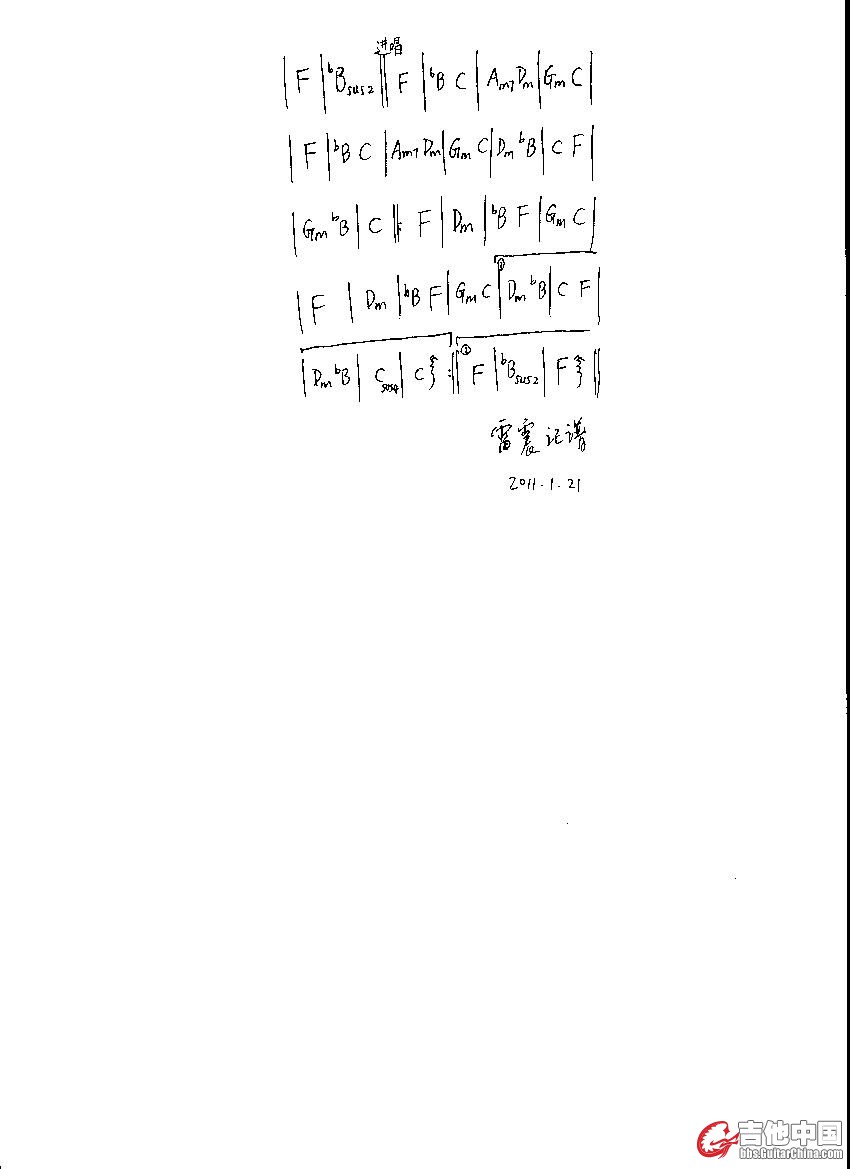 进唱
| F | bBsus2 || F | bB C | Am7 Dm | Gm C |
| F | bB C | Am7 Dm | Gm C | Dm bB | C F |
| Gm bB | C ‖: F | Dm | bB F | Gm C |
①
| F | Dm | bB F | Gm C | Dm bB | C F |
②
| Dm bB | Csus4 | C :‖ F | bBsus2 | F ‖
雷震记谱
2011.1.21
吉他中国
bbs.GuitarChina.com